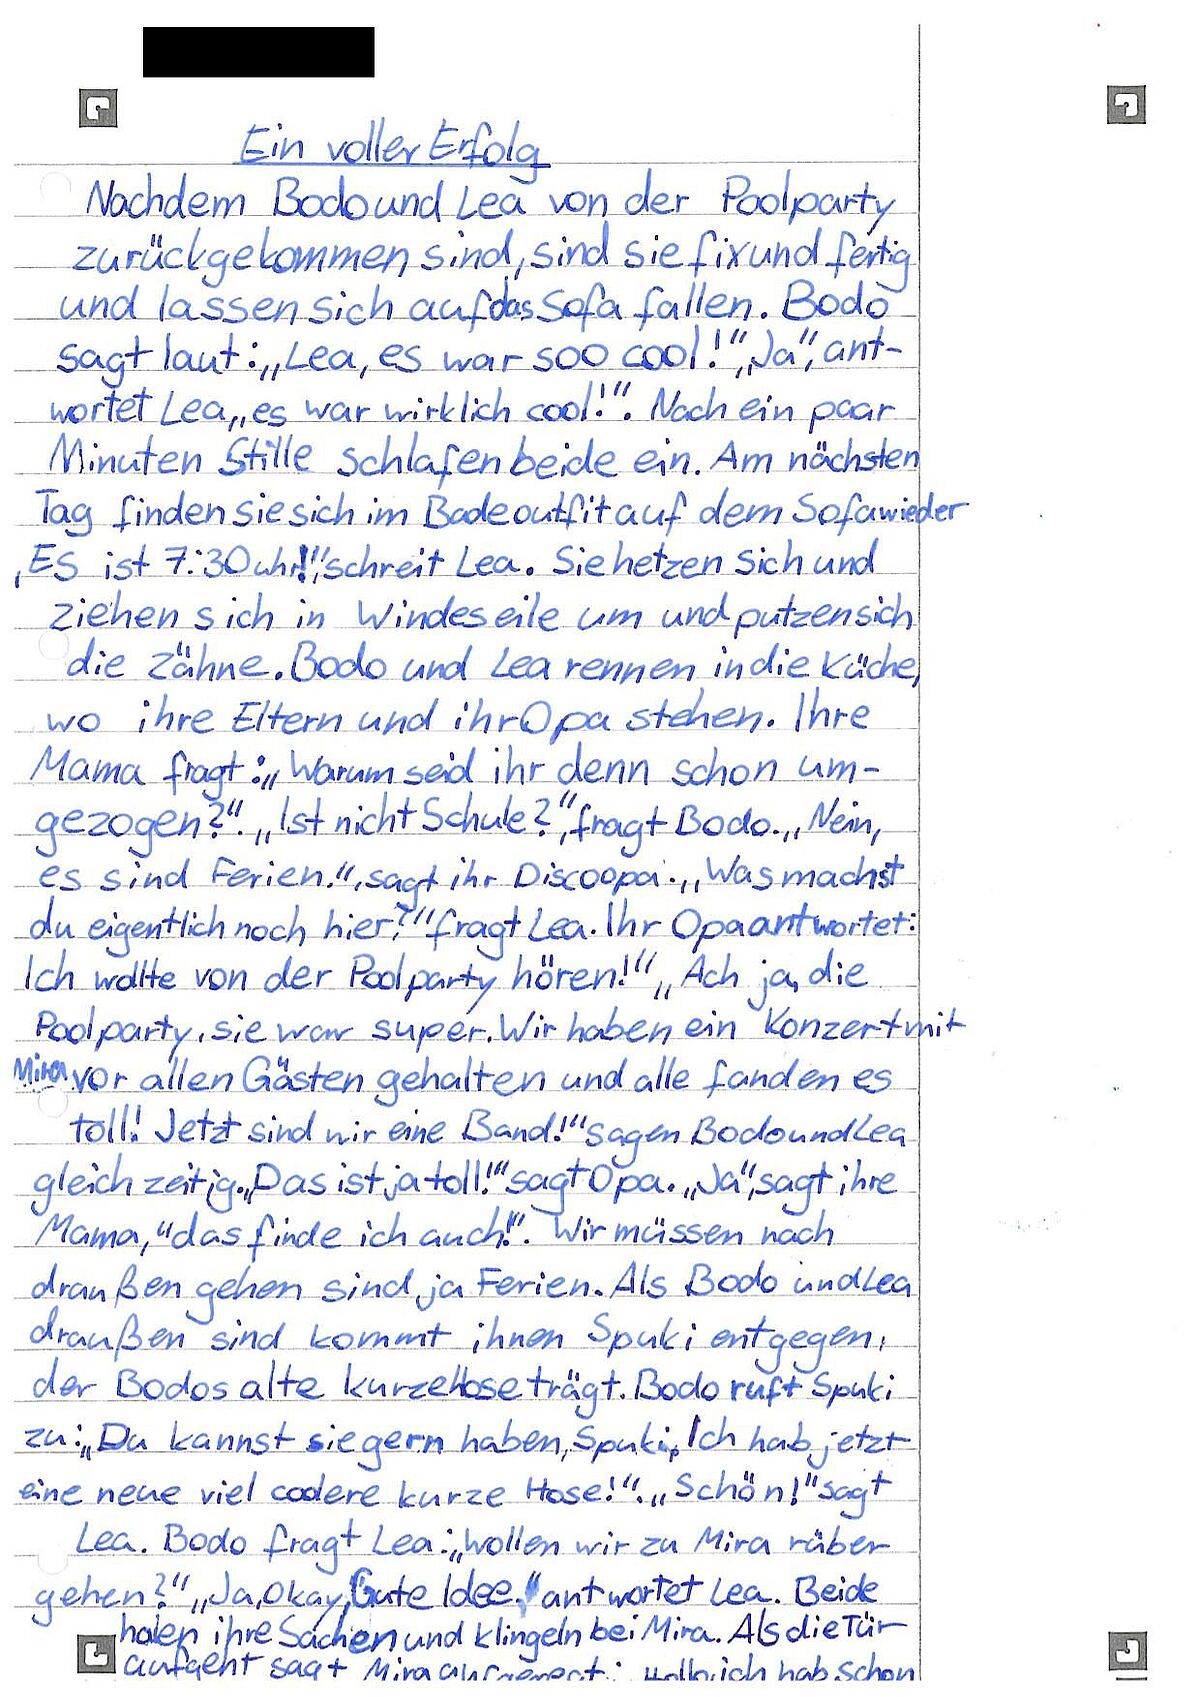 Ein voller Erfolg
Nachdem Bodo und Lea von der Poolparty
zurückgekommen sind, sind sie fix und fertig
und lassen sich auf das Sofa fallen. Bodo
sagt laut: „Lea, es war soo cool!“ „Ja“, ant-
wortet Lea „es war wirklich cool!“. Nach ein paar
Minuten Stille schlafen beide ein. Am nächsten
Tag finden sie sich im Badeoutfit auf dem Sofa wieder
„Es ist 7:30 uhr!“, schreit Lea. Sie hetzen sich und
ziehen sich in Windeseile um und putzen sich
die Zähne. Bodo und Lea rennen in die Küche,
wo ihre Eltern und ihr Opa stehen. Ihre
Mama fragt: „Warum seid ihr denn schon um-
gezogen?“. „Ist nicht Schule?“, fragt Bodo. „Nein,
es sind Ferien.“, sagt ihr Discoopa. „Was machst
du eigentlich noch hier?“ fragt Lea. Ihr Opa antwortet:
Ich wollte von der Poolparty hören!“ „Ach ja, die
Poolparty, sie war super. Wir haben ein Konzert mit
Mira vor allen Gästen gehalten und alle fanden es
toll! Jetzt sind wir eine Band!“ sagen Bodo und Lea
gleichzeitig. „Das ist ja toll!“ sagt Opa. „Ja“, sagt ihre
Mama, “das finde ich auch!“. Wir müssen nach
draußen gehen sind ja Ferien. Als Bodo und Lea
draußen sind kommt ihnen Spuki entgegen,
der Bodos alte kurze Hose trägt. Bodo ruft Spuki
zu: „Du kannst sie gern haben, Spuki, Ich hab jetzt
eine neue viel coolere kurze Hose!“. „Schön!“ sagt
Lea. Bodo fragt Lea: „Wollen wir zu Mira rüber
gehen?“ „Ja, Okay, Gute Idee.“ antwortet Lea. Beide
holen ihre Sachen und klingeln bei Mira. Als die Tür
aufgeht sagt Mira aufgeregt: Hallo, ich hab schon